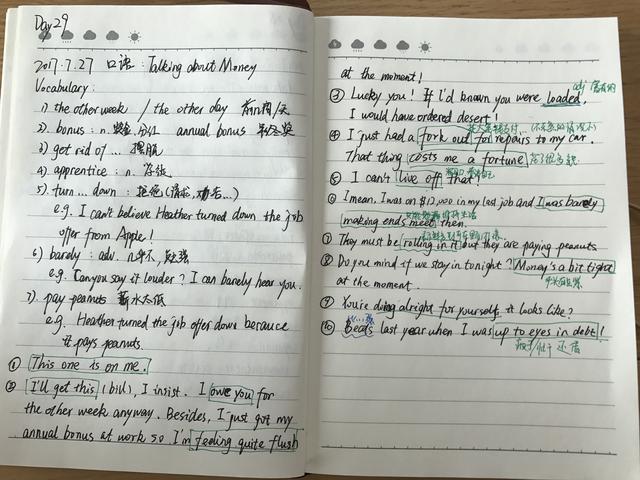 Day 29
2017.7.27 口语：Talking about Money
Vocabulary:
1) the other week / the other day 前几周/天
2) bonus: n. 奖金, 红利 annual bonus 年终奖
3) get rid of ... 摆脱
4) apprentice: n. 学徒
5) turn ... down: 拒绝(请求,劝告...)
e.g. I can't believe Heather turned down the job
offer from Apple!
6) barely: adv. 几乎不, 勉强
e.g. Can you say it louder? I can barely hear you.
7) pay peanuts 薪水太低
e.g. Heather turned the job offer down because
it pays peanuts.
① This one is on me.
② I'll get this (bill), I insist. I owe you for
the other week anyway. Besides, I just got my
annual bonus at work so I'm feeling quite flush
at the moment!
adj 富有的
③ Lucky you! If I'd known you were loaded,
I would have ordered desert!
④ I just had a fork out for repairs to my car.
That thing costs me a fortune 花了很多钱
⑤ I can't live off that!
⑥ I mean, I was on $12,000 in my last job and I was barely
making ends meet then.
⑦ They must be rolling in it but they are paying peanuts
⑧ Do you mind if we stay in tonight? Money's a bit tight
at the moment.
⑨ You're doing alright for yourself, it looks like?
⑩ Beats last year when I was up to eyes in debt!